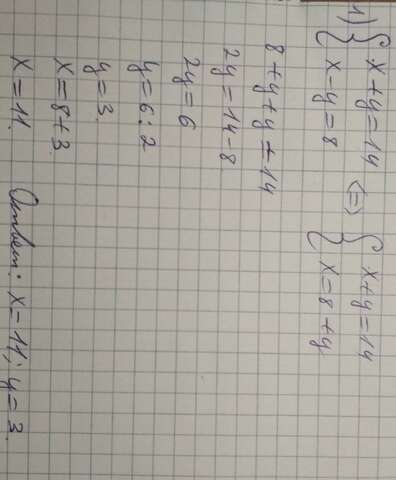 1) { x+y=14 <=> { x+y=14
{ x-y=8 { x=8+y
8+y+y=14
2y=14-8
2y=6
y=6:2
y=3.
x=8+3
x=11. Ответ: x=11; y=3.